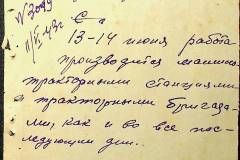 № 3099
11/VI 43 г.
13-14 июня работа
производится машинно
тракторными станциями
и тракторными бригада-
ми, как и во все пос-
ледующие дни.